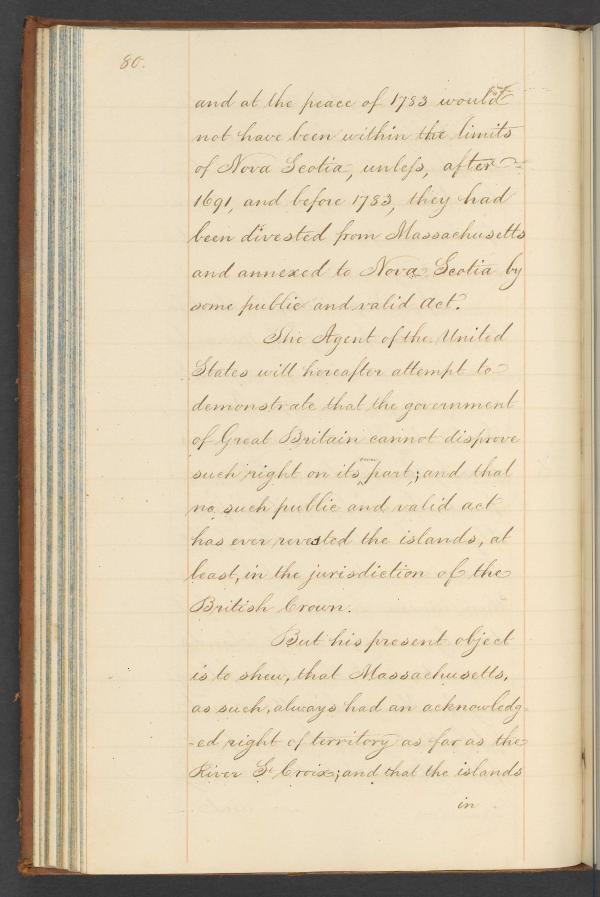 80.
and at the peace of 1783 would
not have been within the limits
of Nova Scotia, unless, after
1691, and before 1783, they had
been divested from Massachusetts
and annexed to Nova Scotia by
some public and valid act.
The Agent of the United
States will hereafter attempt to
demonstrate that the government
of Great Britain cannot disprove
such right on its own part; and that
no such public and valid act
has ever revested the islands, at
least, in the jurisdiction of the
British Crown.
But his present object
is to shew, that Massachusetts,
as such, always had an acknowledg-
-ed right of territory as far as the
River St Croix; and that the islands
in